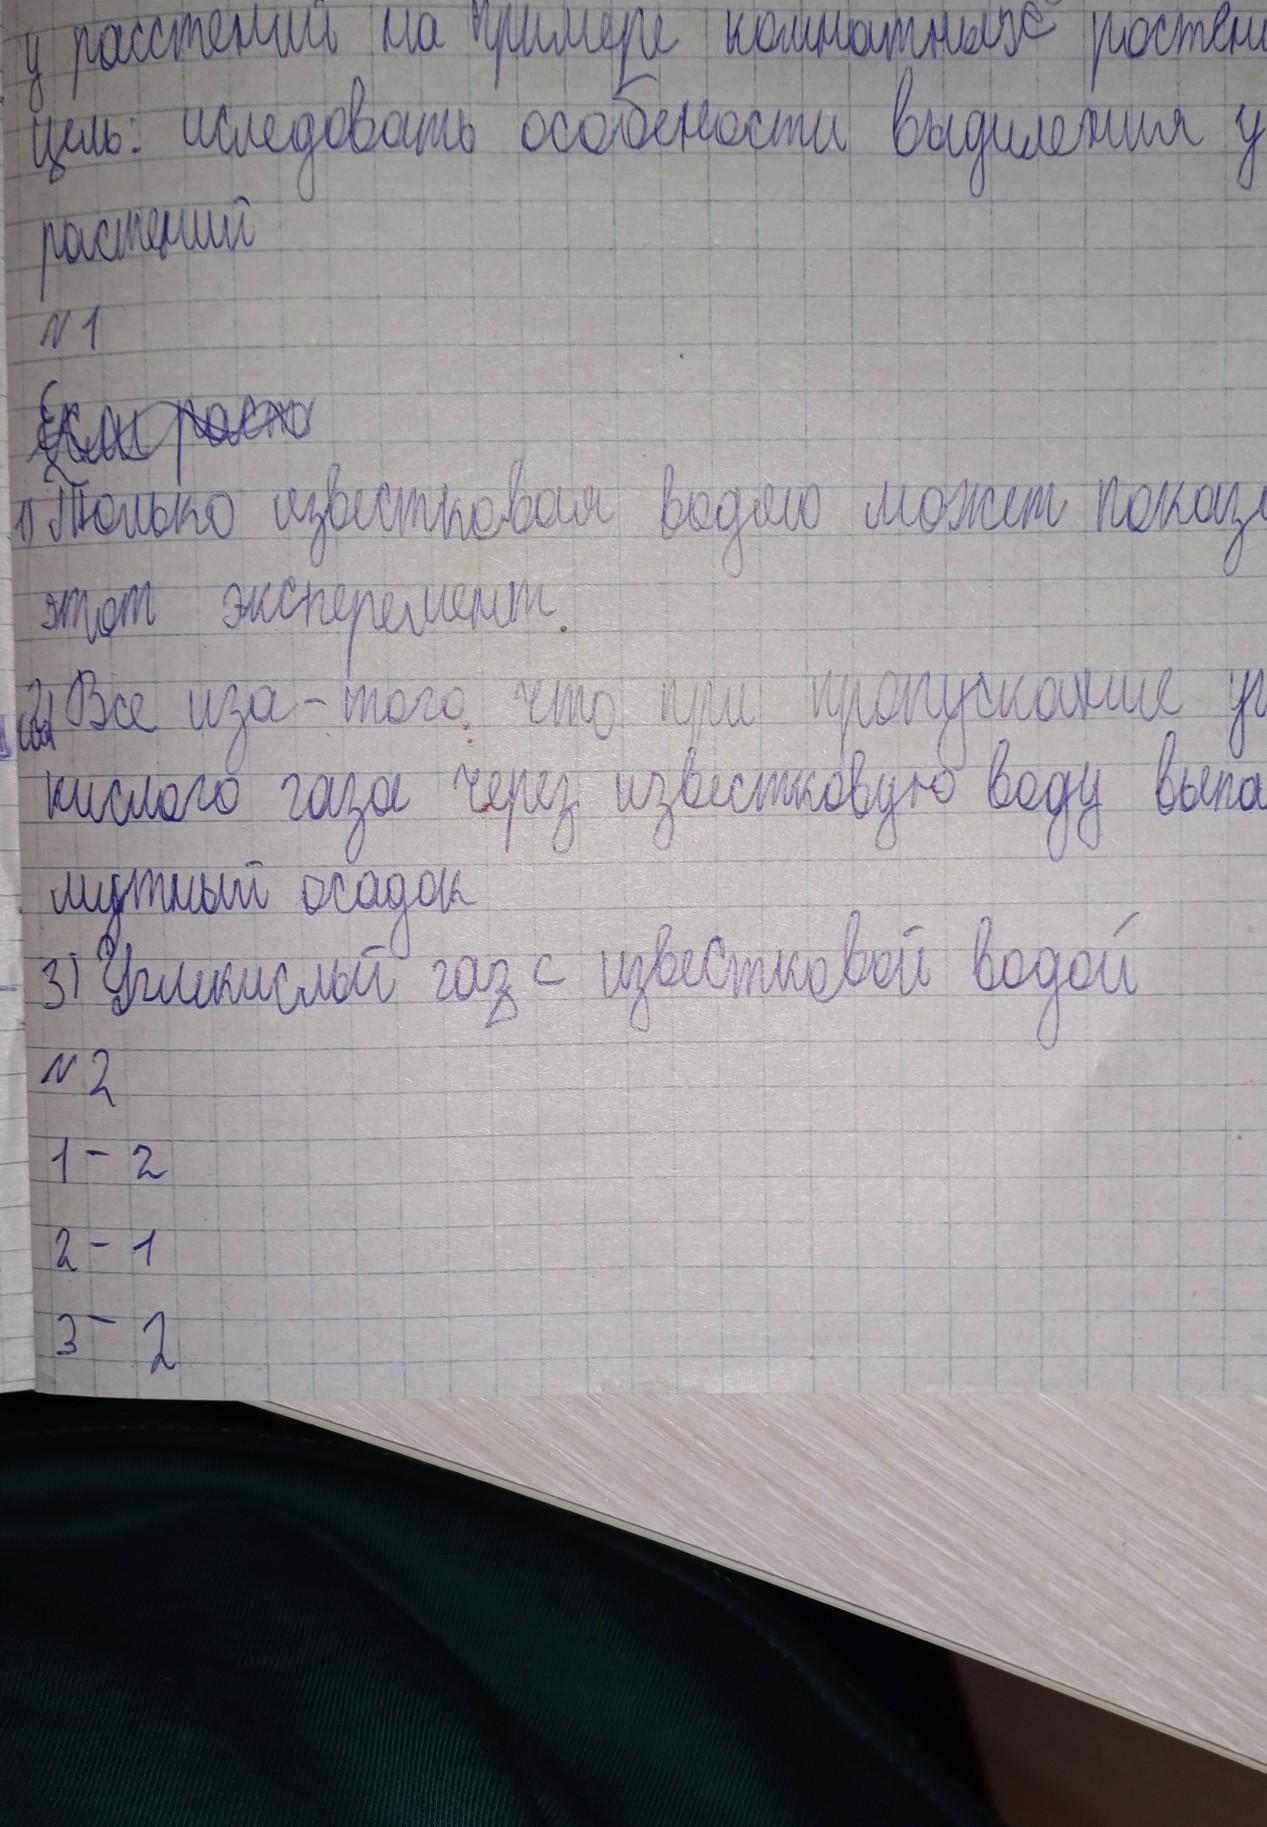 у расстений на примере комнатных растен
цель: иследовать особености выдиления у
растений
N 1
1) Только известковая водяю может показ
этот эксперемент.
2) Все иза-того что при пропускание уг
кислого газа через известковую воду выпа
мутный осадок
3) Угликислый газ с известковой водой
N 2
1 - 2
2 - 1
3 - 2